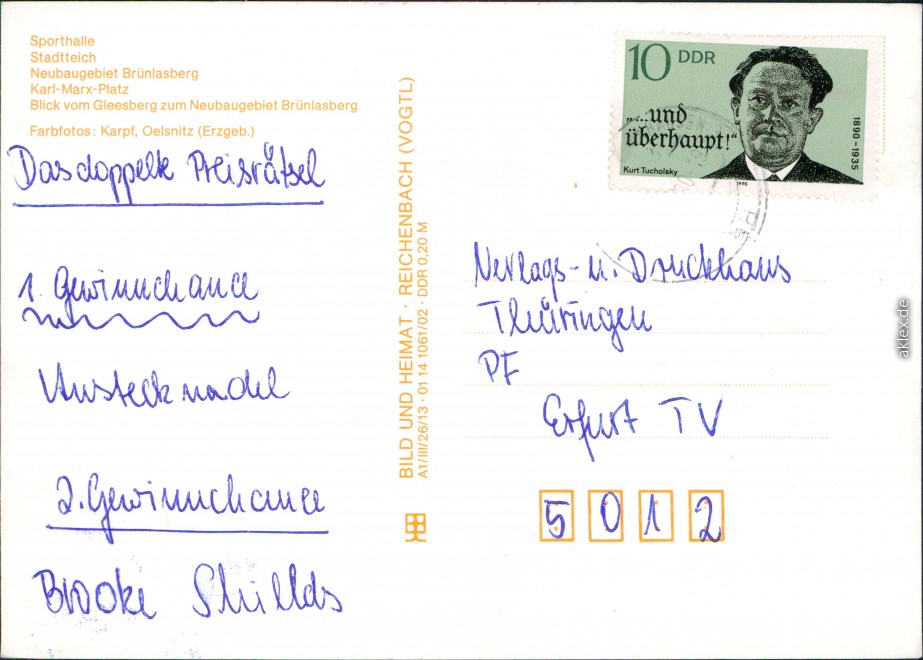 Sporthalle
Stadtteich
Neubaugebiet Brünlasberg
Karl-Marx-Platz
Blick vom Gleesberg zum Neubaugebiet Brünlasberg
Farbfotos: Karpf, Oelsnitz (Erzgeb.)
Das doppelte Preisrätsel
1. Gewinnchance
Ansteck nadel
2. Gewinnchance
Brooke Shillds
BILD UND HEIMAT · REICHENBACH (VOGTL)
A1/III/26/13 · 01 14 1061/02 · DDR 0,20 M
10 DDR
„...und
überhaupt!"
Kurt Tucholsky
1990
1890–1935
Verlags- u. Druckhaus
Thüringen
PF
Erfurt TV
5 0 1 2
aklex.de